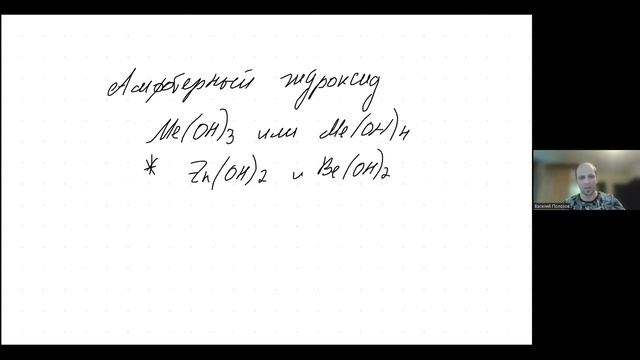 Амфотерный гидроксид
Me(OH)3 или Me(OH)4
* Zn(OH)2 и Be(OH)2
Василий Полозов